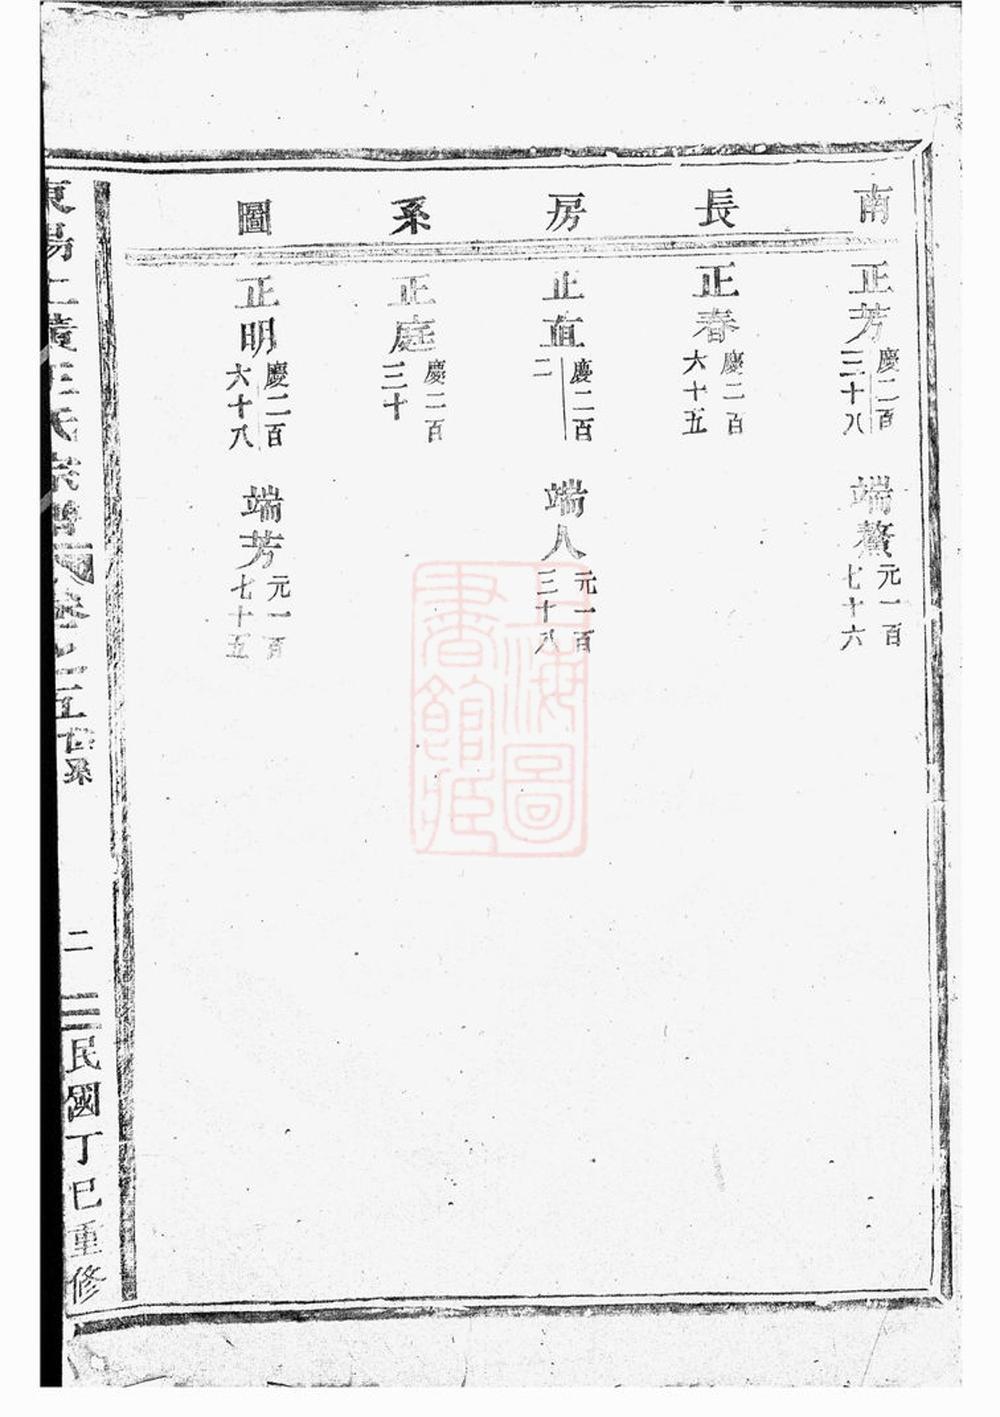 南長房系圖
正芳慶二百三十八
端鰲元一百七十六
正春慶二百六十五
正直慶二百二
端人元一百三十八
正庭慶二百三十
正明慶二百六十八
端芳元一百七十五
東陽上璜王氏宗譜卷之五世系
二
民國丁巳重修
上海圖書館藏